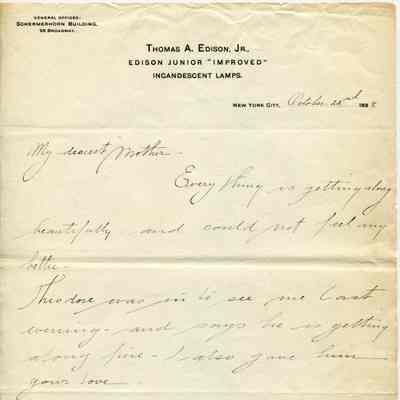 GENERAL OFFICES:
SCHERMERHORN BUILDING,
96 BROADWAY.
THOMAS A. EDISON, JR.,
EDISON JUNIOR "IMPROVED"
INCANDESCENT LAMPS.
NEW YORK CITY, October 22nd 1898
My dearest Mother -
Everything is getting along
beautifully and could not feel any
better -
Theodore was in to see me last
evening - and says he is getting
along fine - I also gave him
your love -